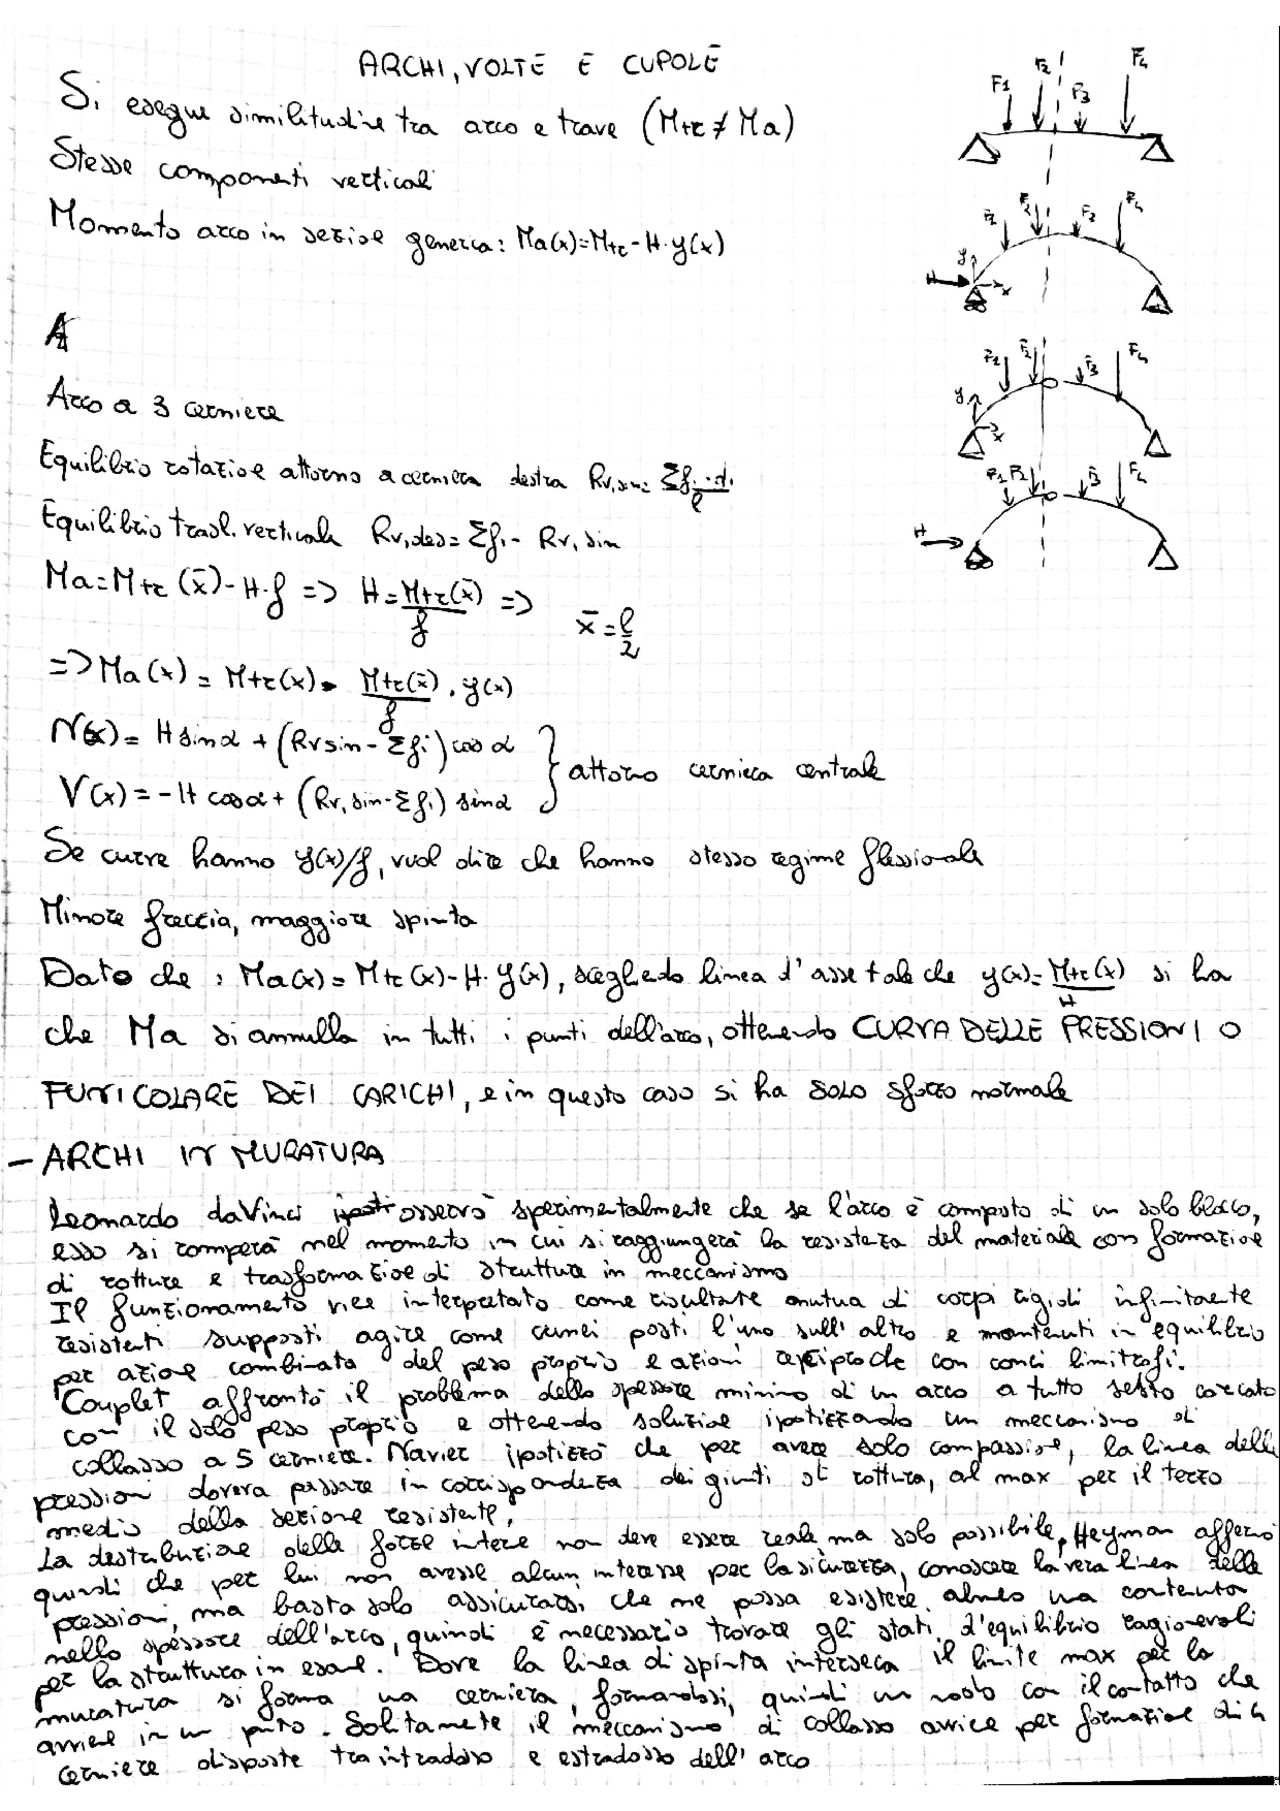 ARCHI, VOLTE E CUPOLE
Si esegue similitudine tra arco e trave (Mtr ≠ Ma)
Stesse componenti verticali
Momento arco in sezione generica: Ma(x)=Mtr-H·y(x)
F1 F2 F3 F4
F2 F4
y x H
Arco a 3 cerniere
F2 F3 F4
y x
Equilibrio rotazione attorno a cerniera destra Rv,sin= Σfi·di/l
F1 F2 F3 F4
H
Equilibrio trasl. verticale Rv,des= Σfi - Rv,sin
Ma=Mtr(x̄)-H·f => H=Mtr(x̄)/f => x̄=l/2
=> Ma(x) = Mtr(x) - Mtr(x̄)/f · y(x)
N(x)= H sinα + (Rvsin-Σfi) cos α
V(x)=-H cosα+ (Rv,sin-Σfi) sinα } attorno cerniera centrale
Se curve hanno y(x)/f, vuol dire che hanno stesso regime flessionale
Minore freccia, maggiore spinta
Dato che : Ma(x)= Mtr(x)-H·y(x), scegliendo linea d'asse tale che y(x)=Mtr(x)/H si ha
che Ma si annulla in tutti i punti dell'arco, ottenendo CURVA DELLE PRESSIONI O
FUNICOLARE DEI CARICHI, e in questo caso si ha SOLO sforzo normale
- ARCHI IN MURATURA
Leonardo da Vinci osservò sperimentalmente che se l'arco è composto di un solo blocco,
esso si romperà nel momento in cui si raggiungerà la resistenza del materiale con formazione
di rotture e trasformazione di struttura in meccanismo
Il funzionamento viene interpretato come risultate mutua di corpi rigidi infinitamente
resistenti supposti agire come cunei posti l'uno sull'altro e mantenuti in equilibrio
per azione combinata del peso proprio e azioni reciproche con conci limitrofi.
Couplet affrontò il problema dello spessore minimo di un arco a tutto sesto caricato
con il solo peso proprio e ottenendo soluzione ipotizzando un meccanismo di
collasso a 5 cerniere. Navier ipotizzò che per avere solo compassione, la linea delle
pressioni doveva passare in corrispondenza dei giunti di rottura, al max per il terzo
medio della sezione resistente,
La distribuzione delle forze interne non deve essere reale ma solo possibile, Heyman affermò
quindi che per lui non avesse alcun interesse per la sicurezza, conoscere la vera linea delle
pressioni, ma basta solo assicurarsi che ne possa esistere almeno una contenuta
nello spessore dell'arco, quindi è necessario trovare gli stati d'equilibrio ragionevoli
per la struttura in esame. Dove la linea di spinta interseca il limite max per la
muratura si forma una cerniera, formandosi, quindi un nodo con il contatto che
avviene in un punto. Solitamente il meccanismo di collasso avvice per formazione di 4
cerniere disposte tra intradosso e estradosso dell'arco